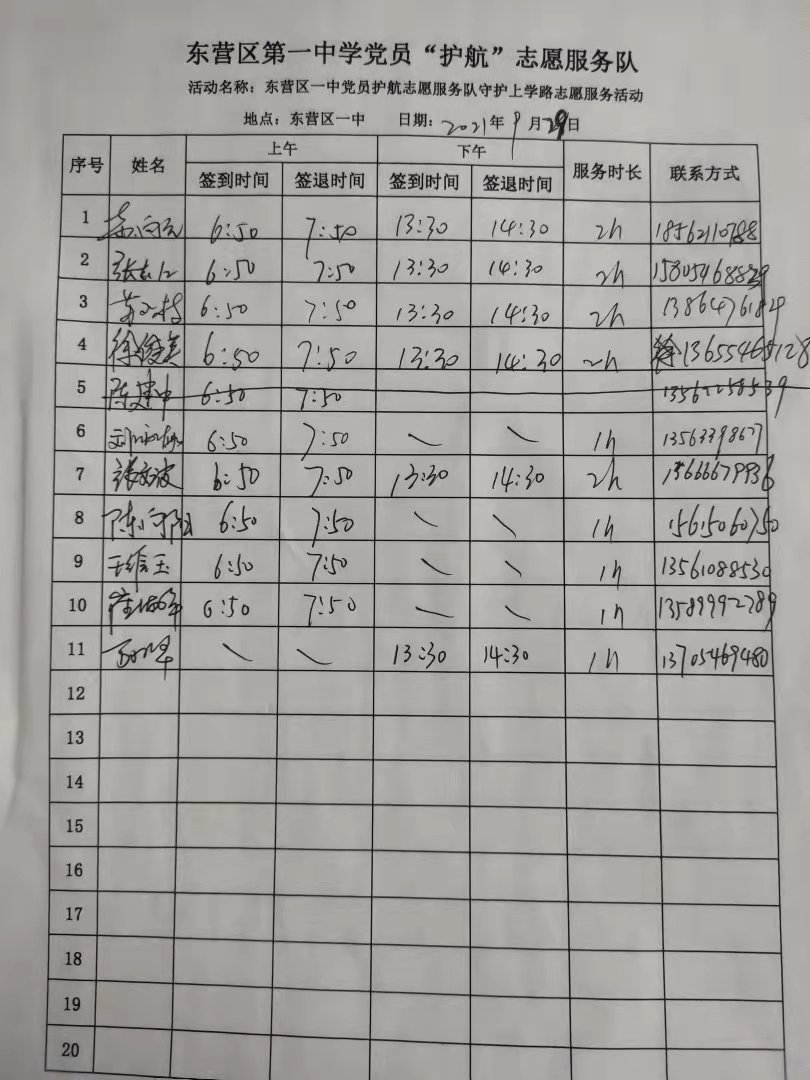 东营区第一中学党员“护航”志愿服务队
活动名称：东营区一中党员护航志愿服务队守护上学路志愿服务活动
地点：东营区一中 日期：2021年9月29日
序号 姓名 上午 下午 服务时长 联系方式
签到时间 签退时间 签到时间 签退时间
1 6:50 7:50 13:30 14:30 2h
2 6:50 7:50 13:30 14:30 2h
3 6:50 7:50 13:30 14:30 2h
4 徐俊美 6:50 7:50 13:30 14:30 2h
5 陈建中 6:50 7:50
6 6:50 7:50 1h
7 6:50 7:50 13:30 14:30 2h
8 6:50 7:50 1h 15615060750
9 6:50 7:50 1h 13561088530
10 6:50 7:50 1h 13589992789
11 13:30 14:30 1h 13705469480
12
13
14
15
16
17
18
19
20